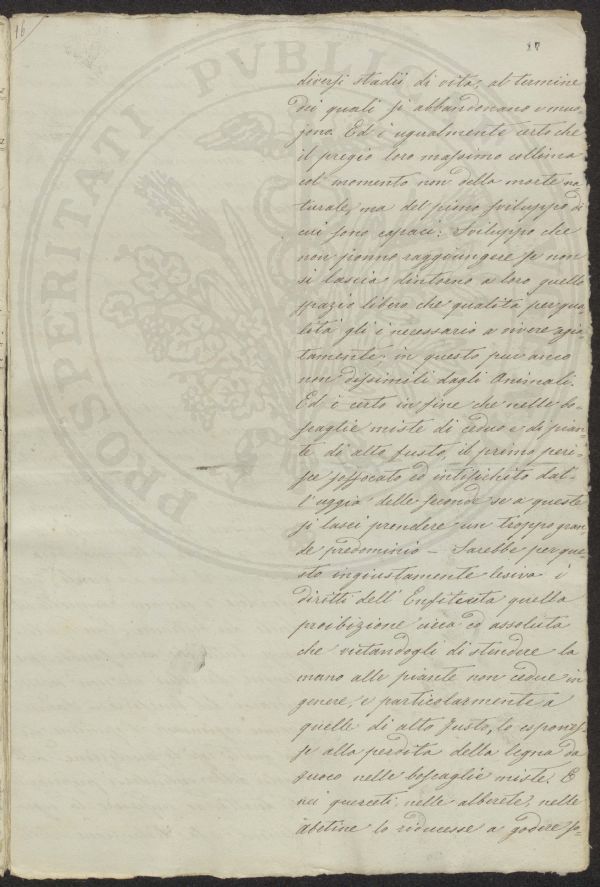 16
27
diversi stadii di vita, al termine
dei quali si abbandonano e muo-
jono. Ed è ugualmente certo che
il pregio loro massimo collima
col momento non della morte na-
turale, ma del pieno sviluppo di
cui sono capaci: Sviluppo che
non ponno raggiungere se non
si lascia dintorno a loro quello
spazio libero che qualità per qua-
lità gli è necessario a vivere
in questo, pur anco
non dissimili dagli Animali.
Ed è certo in fine che nelle bo-
scaglie miste di ceduo e di pian-
te di alto fusto, il primo peri-
sce soffocato ed intisichito dal-
l'uggia delle seconde se a queste
si lasci prendere un troppo gran-
de predominio — Sarebbe per que-
sto ingiustamente lesiva i
diritti dell'Enfiteuta quella
proibizione cieca ed assoluta
che vietandogli di stendere la
mano alle piante non cedue in
genere, e particolarmente a
quelle di alto fusto, lo espones-
se alla perdita della legna da
fuoco nelle boscaglie miste. E
nei querceti, nelle alberete, nelle
abetine lo riducesse a godere so-
PROSPERITATI PVBLICAE